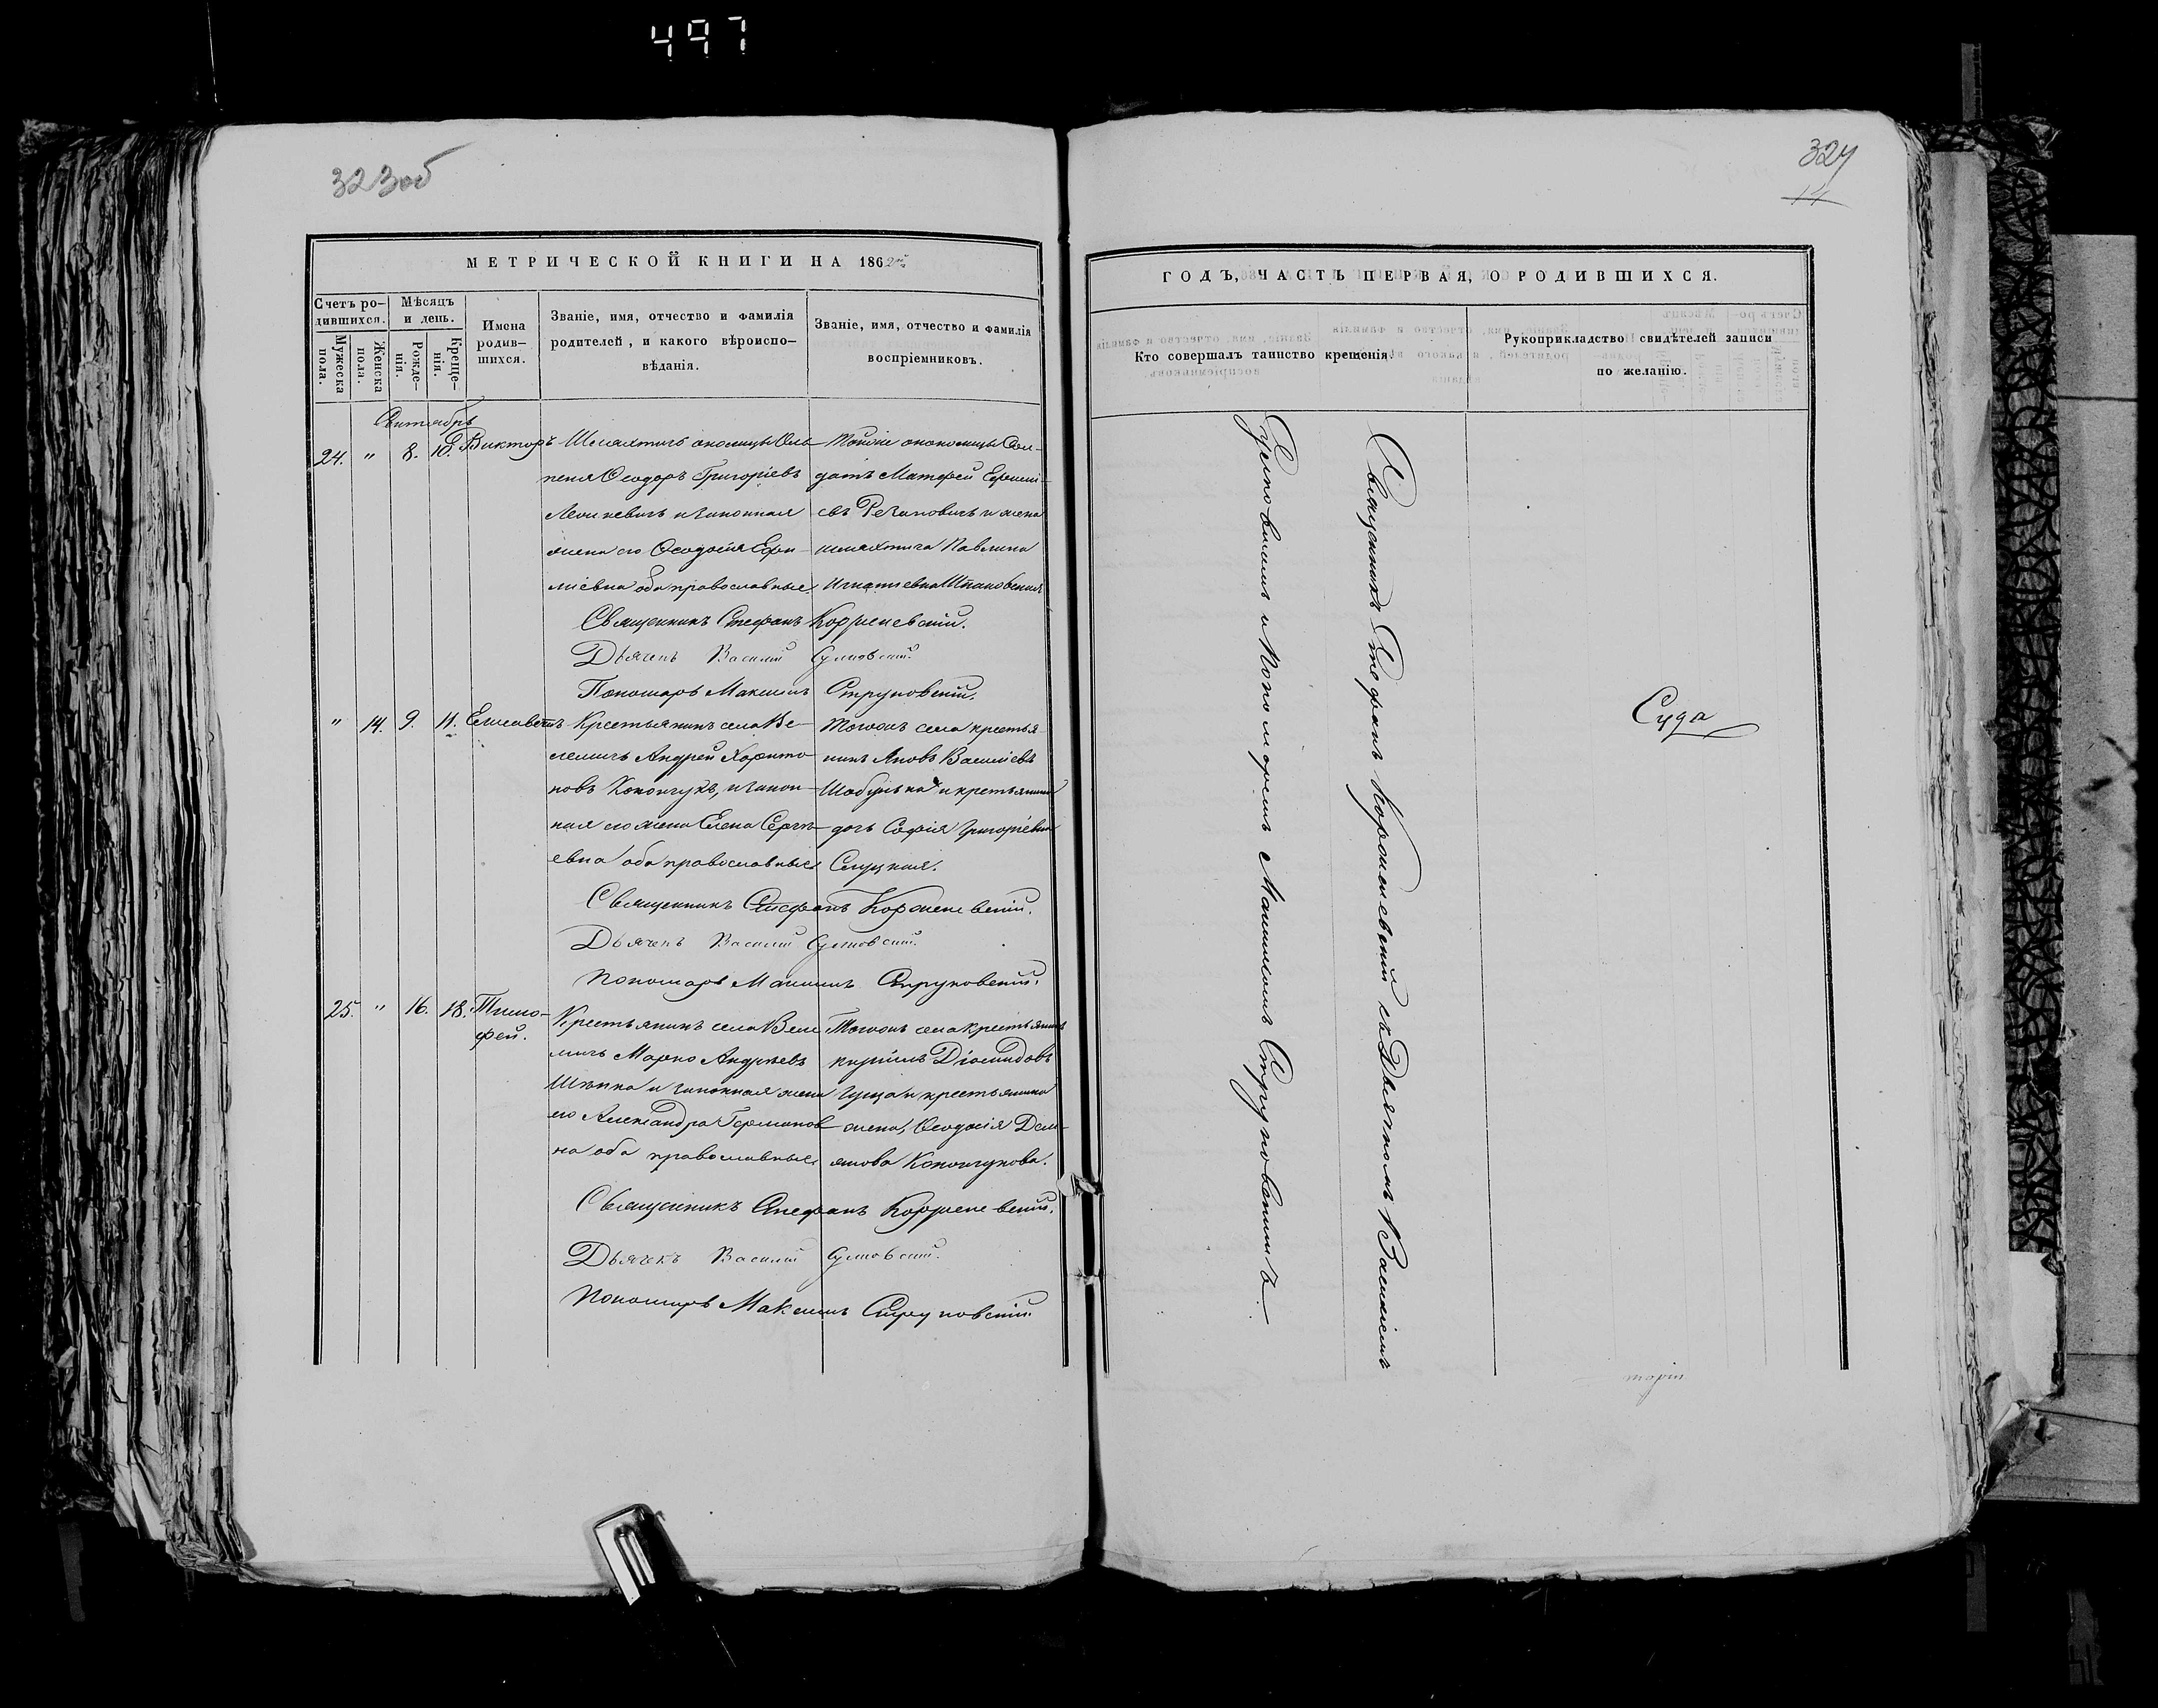 497
323об
МЕТРИЧЕСКОЙ КНИГИ НА 1862й
Счетъ ро-
дившихся.
Мужеска
пола.
Женска
пола.
Мѣсяцъ
и день.
Рожде-
нія.
Креще-
нія.
Имена
родив-
шихся.
Званіе, имя, отчество и фамилія
родителей, и какого вѣроиспо-
вѣданія.
Званіе, имя, отчество и фамилія
воспріемниковъ.
Сентябрь
24. " 8. 10. Викторъ
Шляхтичъ околицы
Ѳеодоръ Григоріевъ
и законная
жена его Ѳеодосія Ефи-
міевна оба православные.
Тойже околицы Сол-
датъ Матфей
и жена
шляхтича Павлина
Игнатіевна
Священникъ Стефанъ Корженевскій.
Дьячекъ Василій
Пономарь Максимъ Струковскій.
" 14. 9. 11. Елисаветъ
Крестьянинъ села Ве-
лемичъ Андрей Харито-
новъ Конончукъ, и закон-
ная его жена Елена Сергѣ-
евна оба православные
Тогожъ села крестья-
нинъ Яковъ Василіевъ
и крестьянина
дочь Софія Григоріевна
Слуцкая.
Священникъ Стефанъ Корженевскій.
Дьячекъ Василій
Пономарь Максимъ Струковскій.
25. " 16. 18. Тимо-
фей.
Крестьянинъ села Веле
мичъ Марко Андреевъ
и законная жена
его Александра Германов
на оба православные
Тогожъ села крестьянинъ
Кирилъ Діомидовъ
и крестьянина
жена, Ѳеодосія Дем-
янова Конончукова.
Священникъ Стефанъ Корженевскій.
Дьячекъ Василій
Пономарь Максимъ Струковскій.
324
14
ГОДЪ, ЧАСТЬ ПЕРВАЯ, О РОДИВШИХСЯ.
Кто совершалъ таинство крещенія.
Рукоприкладство свидѣтелей записи
по желанію.
Священникъ Стефанъ Корженевскій съ Дьячкомъ Василіемъ
и Пономаремъ Максимомъ Струковскимъ
Суда